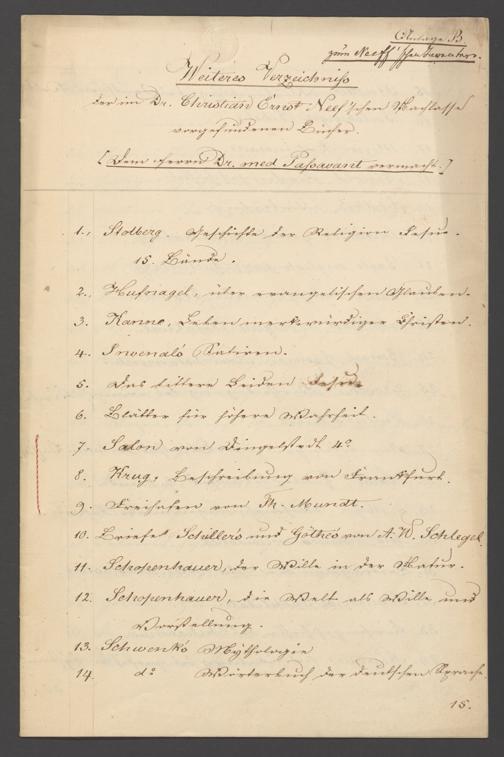 Anlage B.
zum Neeff'schen Inventar.
Weiteres Verzeichniss
der im Dr. Christian Ernst Neef'schen Nachlasse
vorgefundenen Bücher.
[Dem Herrn Dr. med Passavant vermacht.]
1., Stolberg. Geschichte der Religion Jesu.
15. Bände.
2., Hufnagel, über evangelischen Glauben.
3. Kanne, Leben merkwürdiger Christen.
4. Juvenals Satiren.
5. Das bittere Leiden Jesu
6. Blätter für höhere Wahrheit.
7. Salon von Dingelstedt 4°
8. Krug, Beschreibung von Frankfurt.
9. Freihafen von Th. Mundt.
10. Briefe Schillers und Göthes von A. W. Schlegel.
11. Schopenhauer, der Wille in der Natur.
12. Schopenhauer, die Welt als Wille und
Vorstellung.
13. Schwenks Mythologie
14. do Wörterbuch der deutschen Sprache.
15.